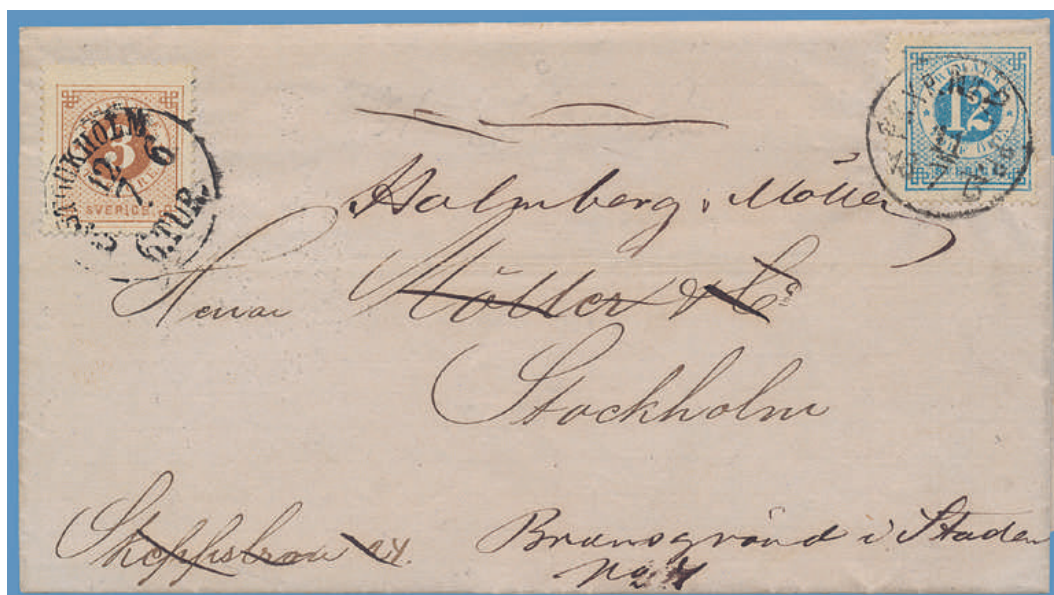 STOCKHOLM
12
7
6
6.TUR.
3
SVERIGE
PKXP. No 2
12
FRIMÄRKE
Holmberg, Möller
Herrar Möller & Co
Stockholm
Skeppsbron 24.
Brunsgränd i Staden
No 4